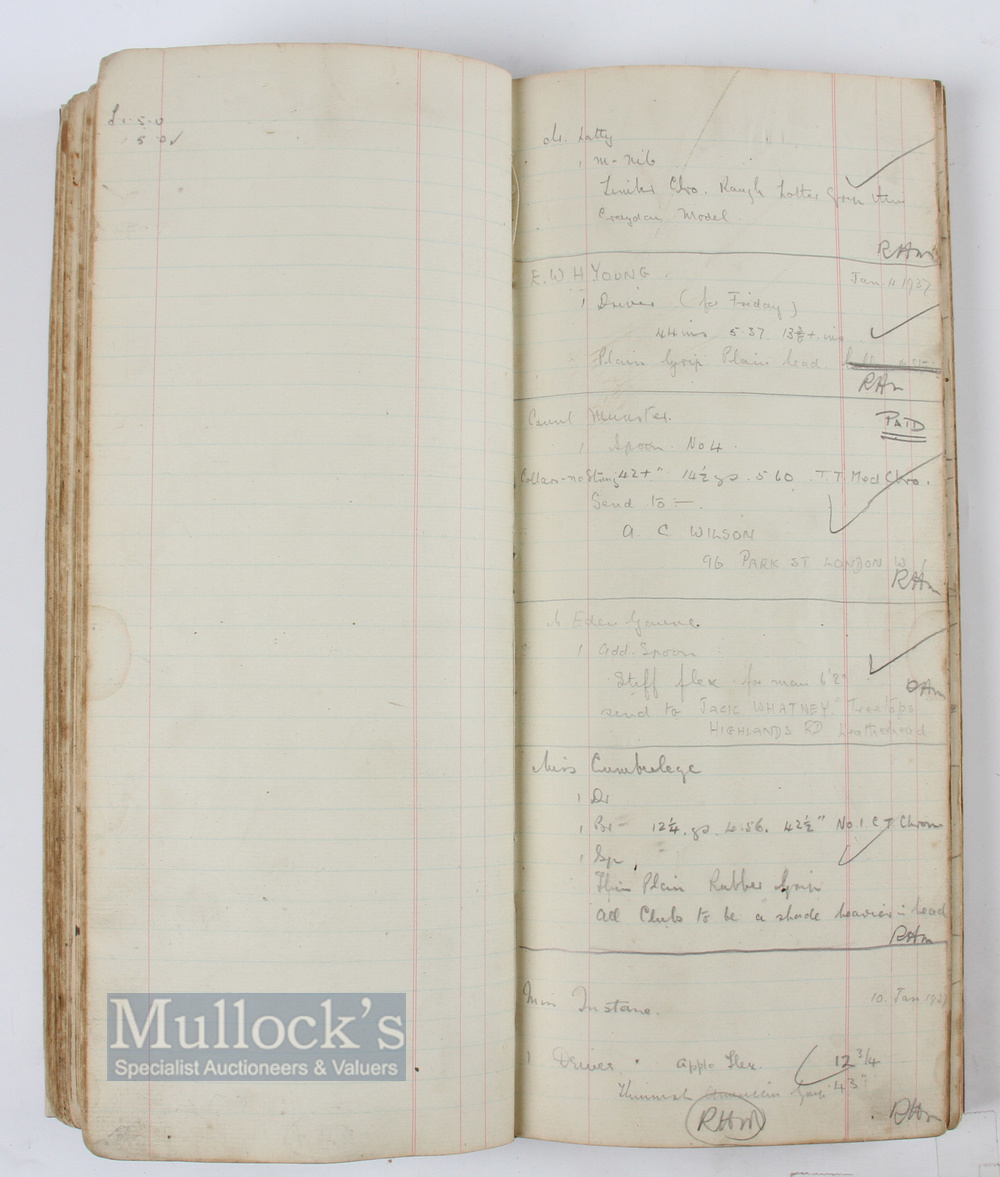 £1. 5. 0
5. 0 ✓
Latty
1 M-Nib
Chro. Rough Grip
Croydon Model
RHm
E. W H YOUNG. Jan. 4 1937
1 Driver (for Friday)
44 ins 5.37 13 3/8 + ins
Plain Grip Plain head
RHm
Count Munster. PAID
1 Spoon No 4.
42+" 14½ 5 60 T.T. Med Chro.
Send to -.
A. C WILSON
96 PARK ST LONDON W 1
RHm
Eden
1 add. Spoon
Stiff flex for man 6'2"
send to JACK WHATNEY. Treetops
HIGHLANDS RD Leatherhead
Miss Cumbelege
1 Dr
1 Br - 12¼ 4.56. 42½" No. 1 C T Chrom
1 Sp
Thin Plain Rubber Grip
All Clubs to be a shade heavier in head
RHm
Miss Instone. 10. Jan 1937
1 Driver. appl. flex. 12 3/4
American Grip 43"
RHm
RHm
Mullock's
Specialist Auctioneers & Valuers